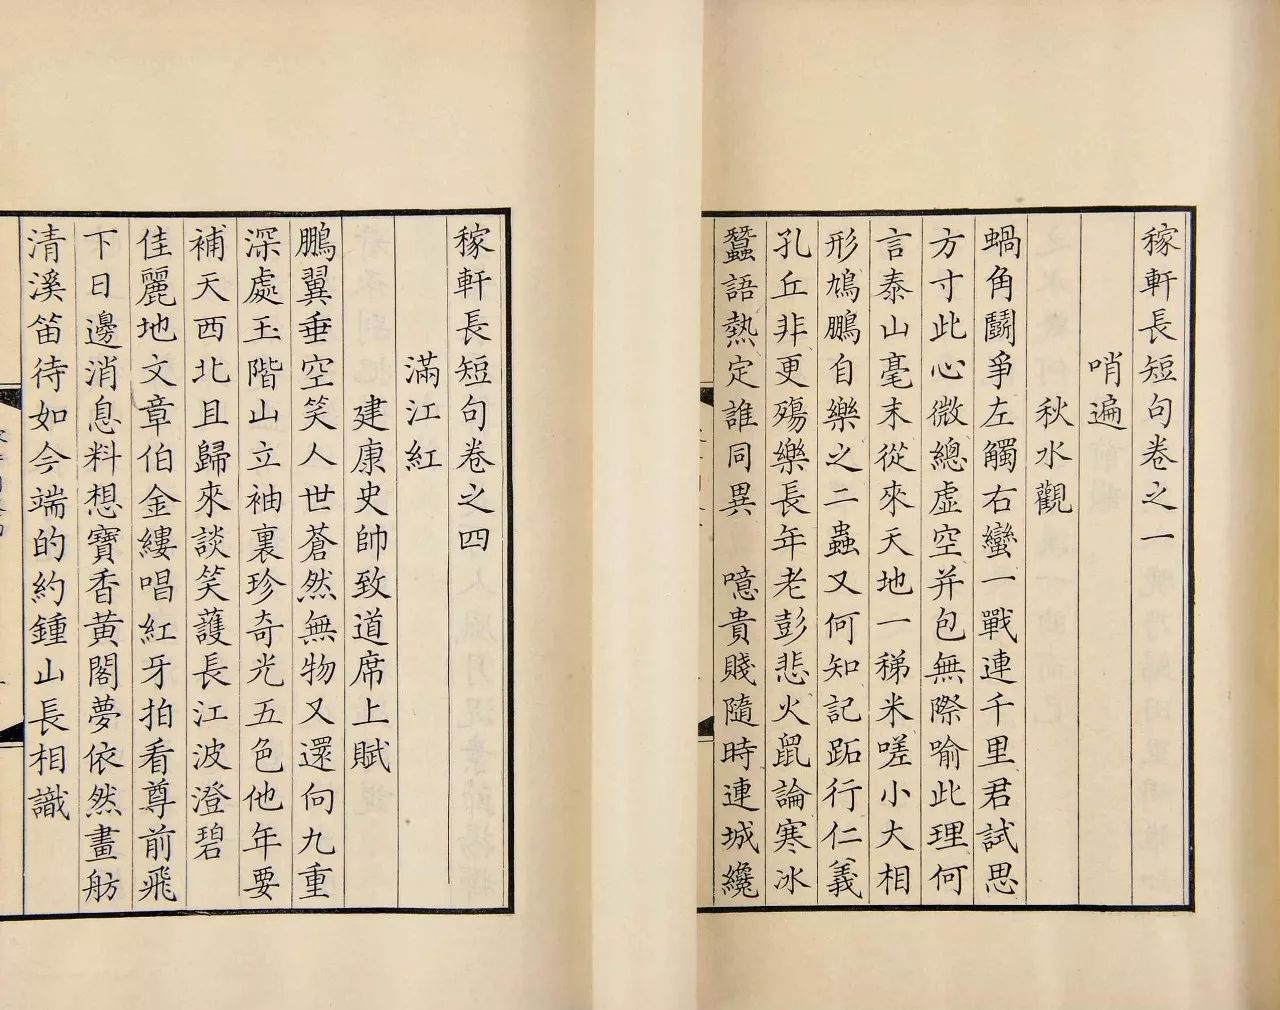 稼軒長短句卷之一
哨遍
秋水觀
蝸角鬬爭左觸右蠻一戰連千里君試思
方寸此心微總虛空并包無際喻此理何
言泰山毫末從來天地一稊米嗟小大相
形鳩鵬自樂之二蟲又何知記跖行仁義
孔丘非更殤樂長年老彭悲火鼠論寒冰
蠶語熱定誰同異　噫貴賤隨時連城纔
稼軒長短句卷之四
滿江紅
建康史帥致道席上賦
鵬翼垂空笑人世蒼然無物又還向九重
深處玉階山立袖裏珍奇光五色他年要
補天西北且歸來談笑護長江波澄碧
佳麗地文章伯金縷唱紅牙拍看尊前飛
下日邊消息料想寶香黃閣夢依然畫舫
清溪笛待如今端的約鍾山長相識